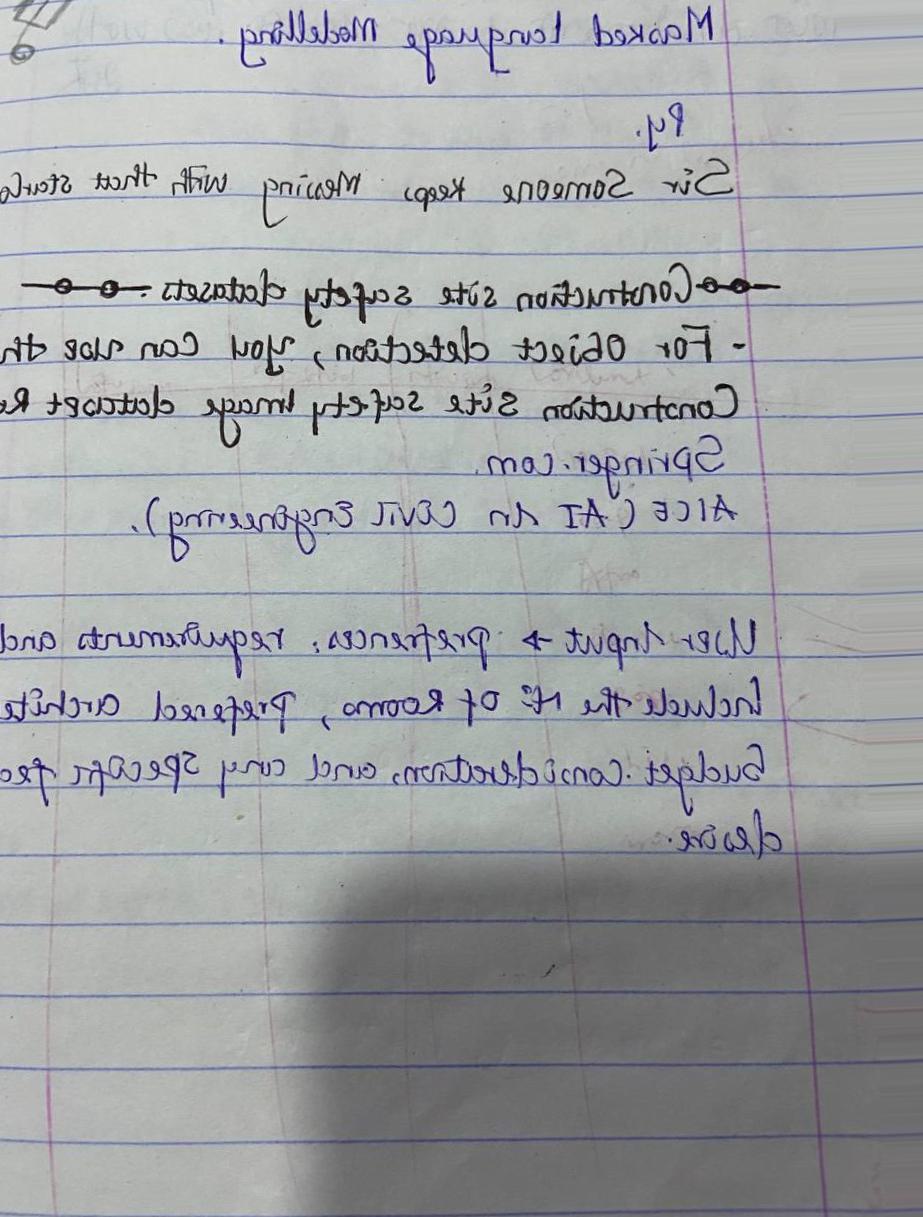 Masked Language Modelling.
Py.
Sir Someone keeps Messing with that
Construction site safety datasets.
- For Object detection, you can use the
Construction Site Safety Image dataset
Springer.com.
AICE (AI in CIVIL Engineering).
User input → prefrences, requirements and
Include the # of Rooms, prefered
Budget considerations, and any specific
desire.